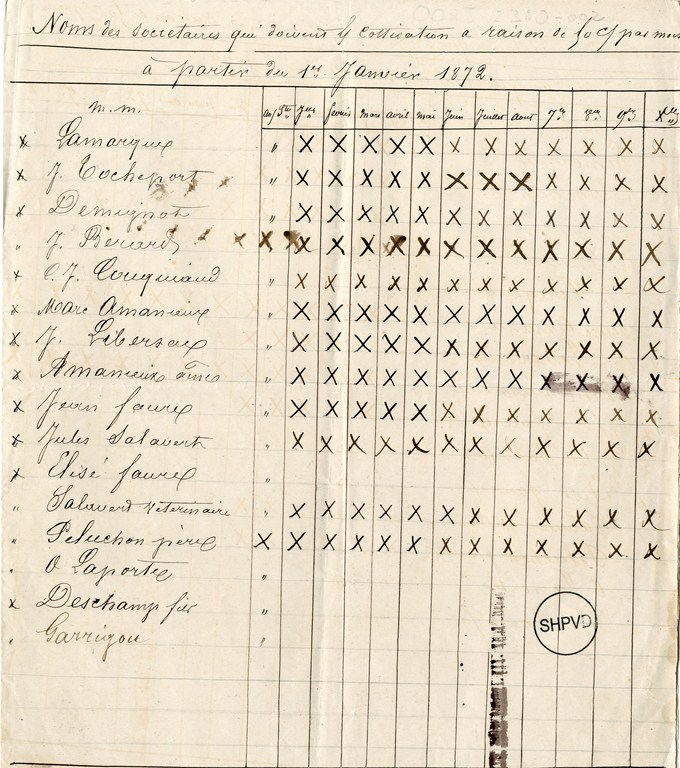 Noms des societaires qui doivent la cottisation a raison de 50 c/ par mois
à partir du 1er Janvier 1872.
m. m. Jer fevrier Mars avril mai Juin Juillet Aout 7re 8re 9re Xre
x Lamarque " X X X X X X X X X X X X
x J. Rocheport " X X X X X X X X X X X X
x Demignot " X X X X X X X X X X X X
" J. Berard X X X X X X X X X X X X X
x C. J. Couquiaud " X X X X X X X X X X X X
x Marc Amanieux " X X X X X X X X X X X X
x J. Libersac " X X X X X X X X X X X X
x Amanieux ainé " X X X X X X X X X X X X
x Jean faure " X X X X X X X X X X X X
x Jules Salavert " X X X X X X X X X X X X
x Elisé faure "
" Salavert Veterinaire X X X X X X X X X X X X
" Peluchon père X X X X X X X X X X X X X
" O Laporte "
x Deschamp fils "
" Garrigou "
SHPVD